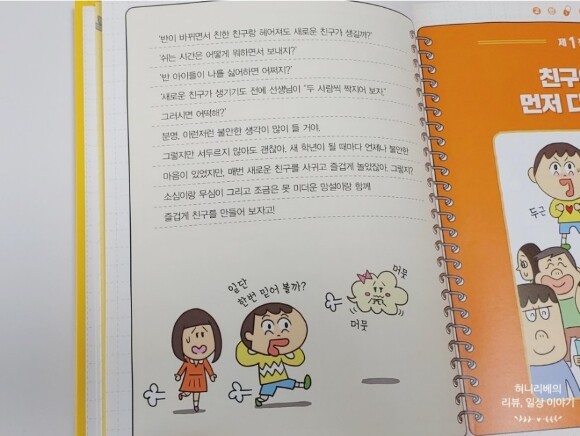 '반이 바뀌면서 친한 친구랑 헤어져도 새로운 친구가 생길까?'
'쉬는 시간은 어떻게 뭐하면서 보내지?'
'반 아이들이 나를 싫어하면 어쩌지?'
'새로운 친구가 생기기도 전에 선생님이 "두 사람씩 짝지어 보자."
그러시면 어떡해?'
분명, 이런저런 불안한 생각이 많이 들 거야.
그렇지만 서두르지 않아도 괜찮아. 새 학년이 될 때마다 언제나 불안한
마음이 있었지만, 매번 새로운 친구를 사귀고 즐겁게 놀았잖아. 그렇지?
소심이랑 무심이 그리고 조금은 못 미더운 망설이랑 함께
즐겁게 친구를 만들어 보자고!
일단
한번 믿어 볼까?
머뭇
머뭇
제1
친구
먼저 다
두근
허니리베의
리뷰, 일상 이야기